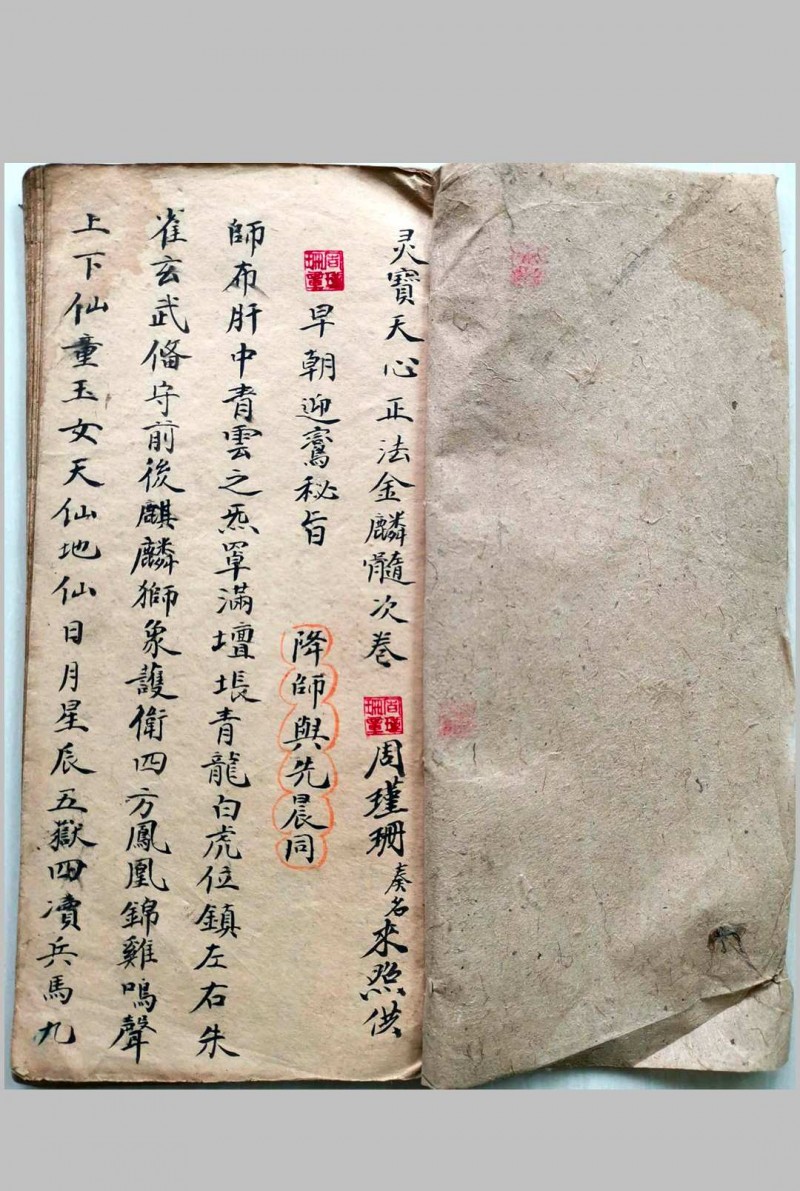 灵寶天心正法金麟髓次卷 周瑾珊奏名來照供
早朝迎鸞秘旨 降師與先晨同
師布肝中青雲之炁罩滿壇場青龍白虎位鎮左右朱
雀玄武俻守前後麒麟獅象護衛四方鳳凰錦雞鳴聲
上下仙童玉女天仙地仙日月星辰五嶽四凟兵馬九